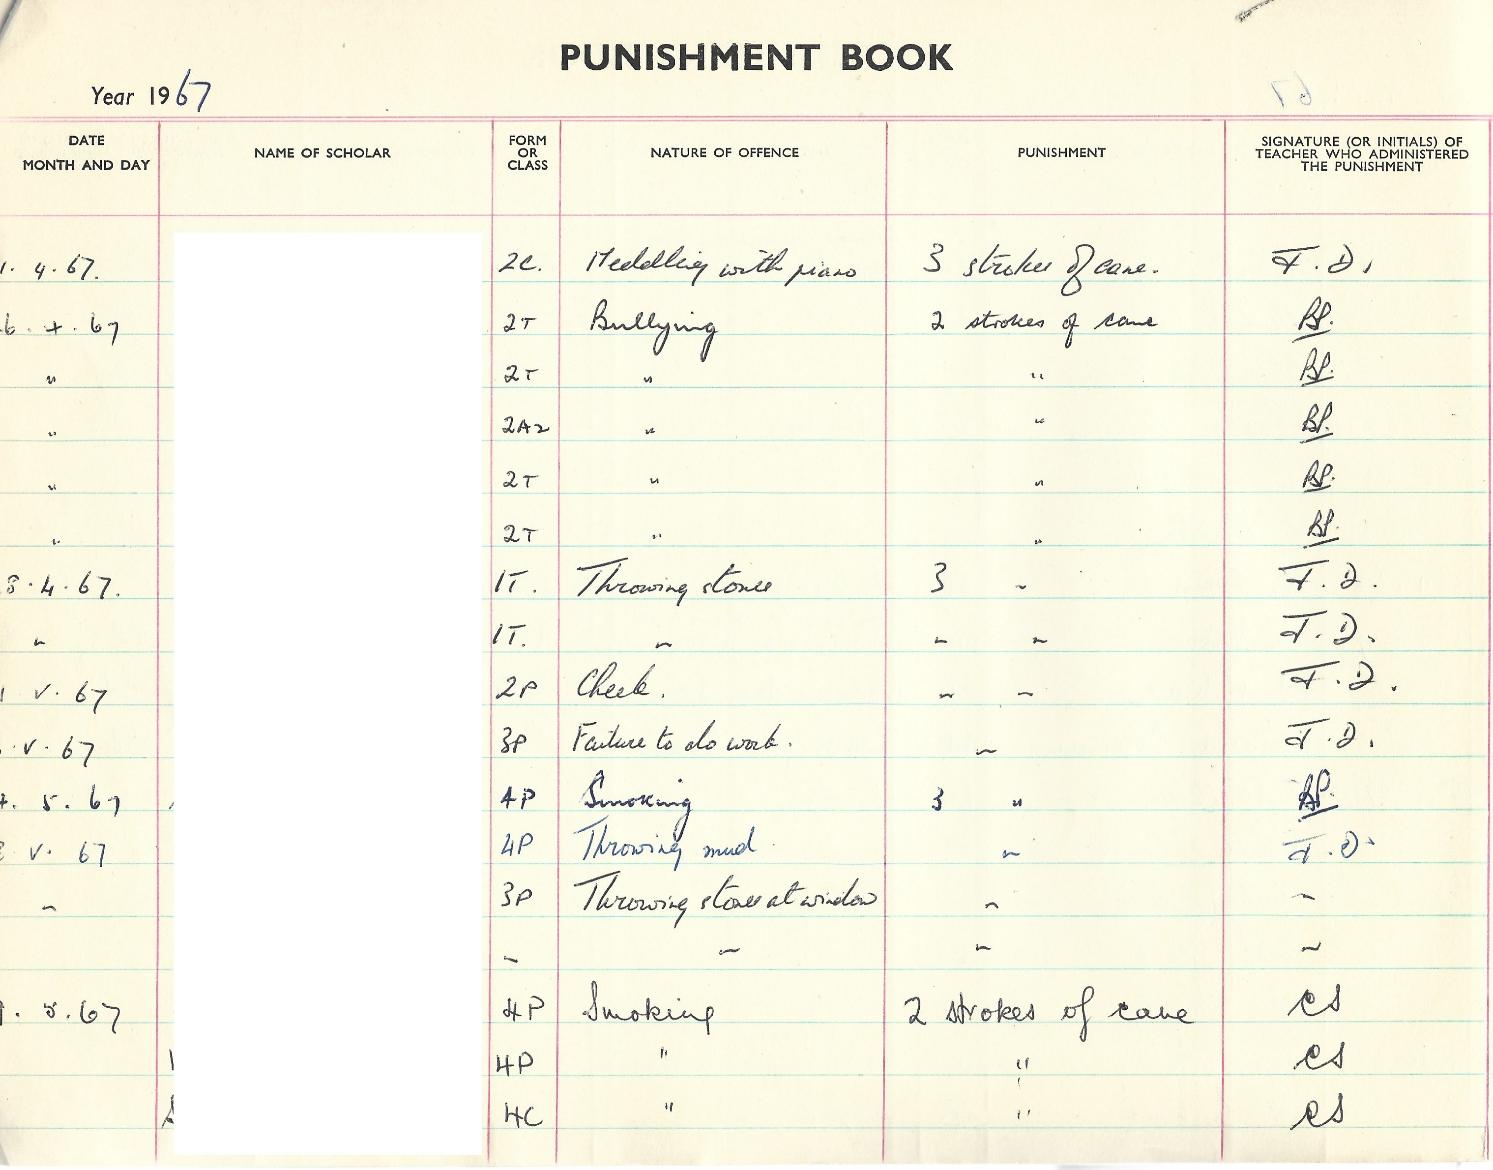 PUNISHMENT BOOK
Year 1967
DATE MONTH AND DAY NAME OF SCHOLAR FORM OR CLASS NATURE OF OFFENCE PUNISHMENT SIGNATURE (OR INITIALS) OF TEACHER WHO ADMINISTERED THE PUNISHMENT
1. 4. 67. 2C. Meddling with piano 3 strokes of cane. F.D.
6. 4. 67 2T Bullying 2 strokes of cane BP.
" 2T " " BP.
" 2A2 " " BP.
" 2T " " BP.
" 2T " " BP.
8.4.67. 1T. Throwing stones 3 " F.D.
" 1T. " " " F.D.
1 V. 67 2P Cheek. " " F.D.
. V. 67 3P Failure to do work. " F.D.
4. 5. 67 4P Smoking 3 " BP.
8 V. 67 4P Throwing mud " F.D.
" 3P Throwing stones at window " "
" " " "
9. 5. 67 4P Smoking 2 strokes of cane CS
4P " " CS
4C " " CS